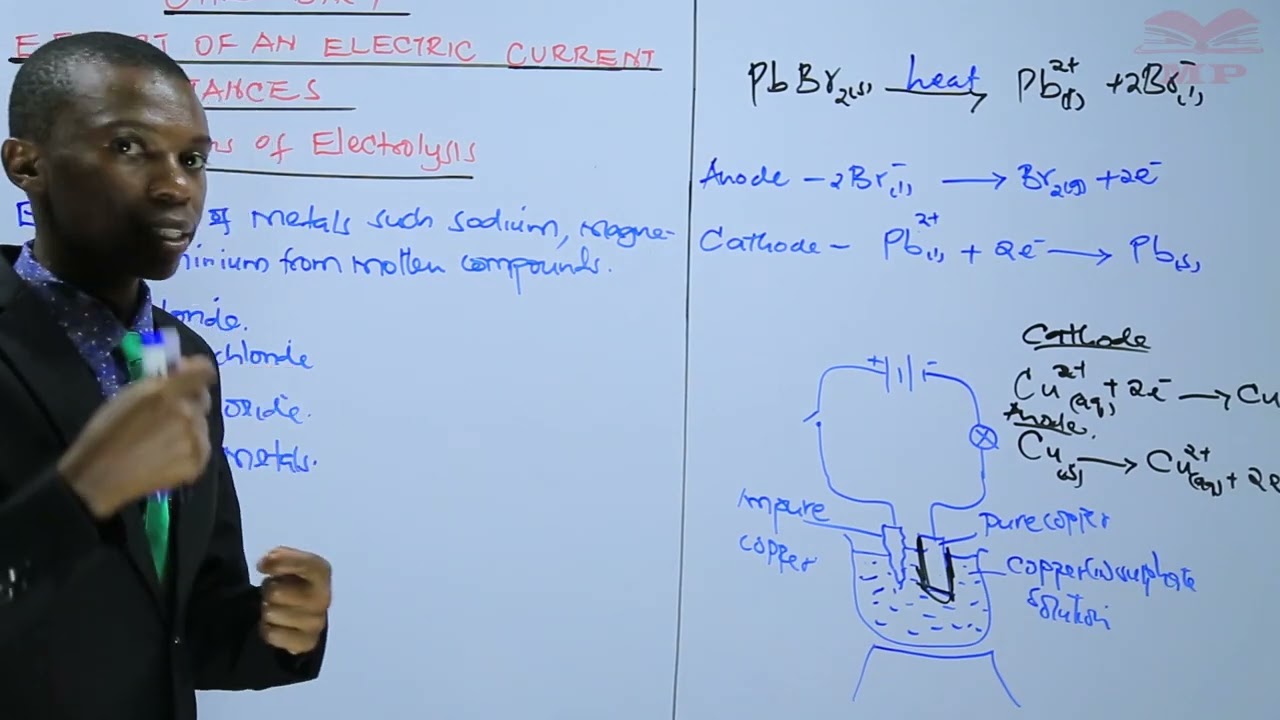 OF AN ELECTRIC CURRENT
TANCES
of Electrolysis
metals such sodium, magne-
inium from molten compounds.
loride.
chloride
oxide.
metals.
PbBr₂(s) heat→ Pb²⁺(l) + 2Br⁻(l)
Anode – 2Br⁻(l) → Br₂(g) + 2e⁻
Cathode – Pb²⁺(l) + 2e⁻ → Pb(s)
Cathode
Cu²⁺(aq) + 2e⁻ → Cu
Anode.
Cu(s) → Cu²⁺(aq) + 2e
+ -
impure
copper
pure copper
copper(II) sulphate
solution
MP